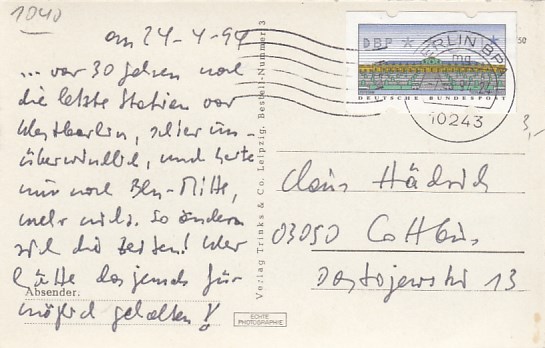 1040
am 24-4-94
... vor 30 Jahren noch
die letzte Station vor
Westberlin, schier un-
überwindlich, und heute
nur noch Bln-Mitte,
mehr nicht. So ändern
sich die Zeiten! Wer
hätte das jemals für
möglich gehalten!
Absender:
Verlag Trinks & Co. Leipzig, Bestell-Nummer 3
ECHTE
PHOTOGRAPHIE
DBP
50
DEUTSCHE BUNDESPOST
BERLIN BPA
mg
10243
3,-
Claus Hädrich
03050 Cottbus
Dostojewski 13